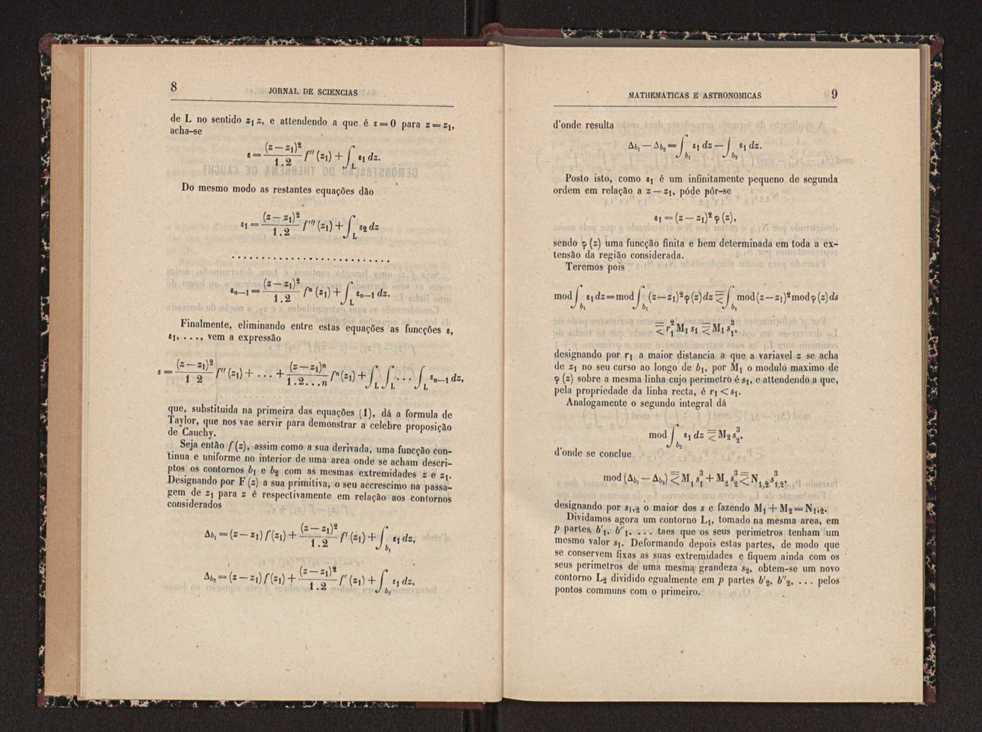 8
JORNAL DE SCIENCIAS
de L no sentido z₁ z, e attendendo a que é ε = 0 para z = z₁,
acha-se
ε = (z − z₁)²/1.2 f''(z₁) + ∫_L ε₁ dz.
Do mesmo modo as restantes equações dão
ε₁ = (z − z₁)²/1.2 f'''(z₁) + ∫_L ε₂ dz
. . . . . . . . . . . . . . . . . . . . . . . . . .
εₙ₋₁ = (z − z₁)²/1.2 fⁿ(z₁) + ∫_L εₙ₋₁ dz.
Finalmente, eliminando entre estas equações as funcções ε,
ε₁, . . ., vem a expressão
ε = (z − z₁)²/1 2 f''(z₁) + . . . + (z − z₁)ⁿ/1.2...n fⁿ(z₁) + ∫_L ∫_L . . . ∫_L εₙ₋₁ dz,
que, substituida na primeira das equações (1), dá a formula de
Taylor, que nos vae servir para demonstrar a celebre proposição
de Cauchy.
Seja então f (z), assim como a sua derivada, uma funcção con-
tinua e uniforme no interior de uma area onde se acham descri-
ptos os contornos b₁ e b₂ com as mesmas extremidades z e z₁.
Designando por F (z) a sua primitiva, o seu accrescimo na passa-
gem de z₁ para z é respectivamente em relação aos contornos
considerados
Δb₁ = (z − z₁) f(z₁) + (z − z₁)²/1.2 f'(z₁) + ∫_b₁ ε₁ dz,
Δb₂ = (z − z₁) f(z₁) + (z − z₁)²/1.2 f'(z₁) + ∫_b₂ ε₁ dz,
MATHEMATICAS E ASTRONOMICAS
9
d'onde resulta
Δb₁ − Δb₂ = ∫_b₁ ε₁ dz − ∫_b₂ ε₁ dz.
Posto isto, como ε₁ é um infinitamente pequeno de segunda
ordem em relação a z − z₁, póde pôr-se
ε₁ = (z − z₁)² φ (z),
sendo φ (z) uma funcção finita e bem determinada em toda a ex-
tensão da região considerada.
Teremos pois
mod ∫_b₁ ε₁ dz = mod ∫_b₁ (z − z₁)² φ(z) dz ≦ ∫_b₁ mod (z − z₁)² mod φ (z) ds
≦ r₁² M₁ s₁ ≦ M₁ s₁³,
designando por r₁ a maior distancia a que a variavel z se acha
de z₁ no seu curso ao longo de b₁, por M₁ o modulo maximo de
φ (z) sobre a mesma linha cujo perimetro é s₁, e attendendo a que,
pela propriedade da linha recta, é r₁ < s₁.
Analogamente o segundo integral dá
mod ∫_b₂ ε₁ dz ≦ M₂ s₂³,
d'onde se conclue
mod (Δb₁ − Δb₂) ≦ M₁ s₁³ + M₂ s₂³ ≦ N₁,₂ s³₁,₂,
designando por s₁,₂ o maior dos s e fazendo M₁ + M₂ = N₁,₂.
Dividamos agora um contorno L₁, tomado na mesma area, em
p partes b'₁, b''₁, . . . taes que os seus perimetros tenham um
mesmo valor s₁. Deformando depois estas partes, de modo que
se conservem fixas as suas extremidades e fiquem ainda com os
seus perimetros de uma mesma grandeza s₂, obtem-se um novo
contorno L₂ dividido egualmente em p partes b'₂, b''₂, . . . pelos
pontos communs com o primeiro.